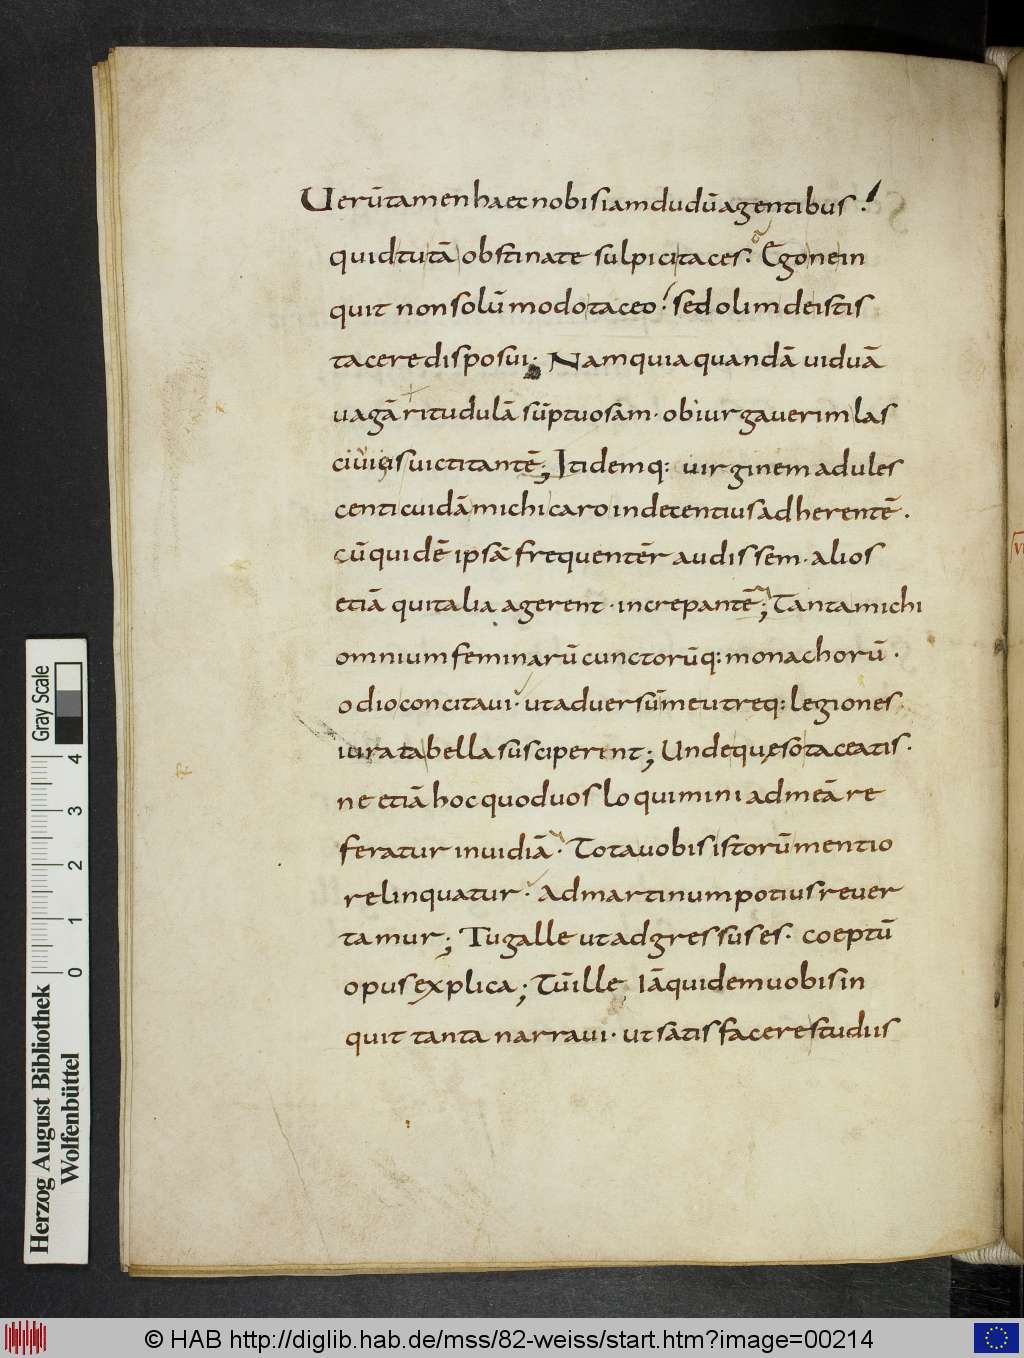 Uerūtamen haec nobis iam dudū agentibus.
quid tu tā obstinate sulpici taces. Ego ne in
quit non solū modo taceo. sed olim de istis
tacere disposui. Nam quia quandā uiduā
uagā ritudulā sūptuosam. obiurgauerim las
ciuius uictitantē; Itidemq: uirginem adules
centi cuidā michi caro indecentius adherentē.
cū quidē ipsā frequentēr audissem. alios
etiā qui talia agerent. increpantē; Tanta michi
omnium feminarū cunctorūq: monachorū.
odio concitaui. ut aduersūm e utreq: legiones.
iurata bella sūsciperent; Unde quęso taceatis.
ne etiā hoc quod uos loquimini ad meā re
feratur inuidiā. Tota uobis istorū mentio
relinquatur. Ad martinum potius reuer
tamur; Tu galle ut adgressus es. coeptū
opus explica; Tūille, Iā quidem uobis in
quit tanta narraui. ut satisfacere studiis
Herzog August Bibliothek
Wolfenbüttel
0 1 2 3 4
Gray Scale
© HAB http://diglib.hab.de/mss/82-weiss/start.htm?image=00214